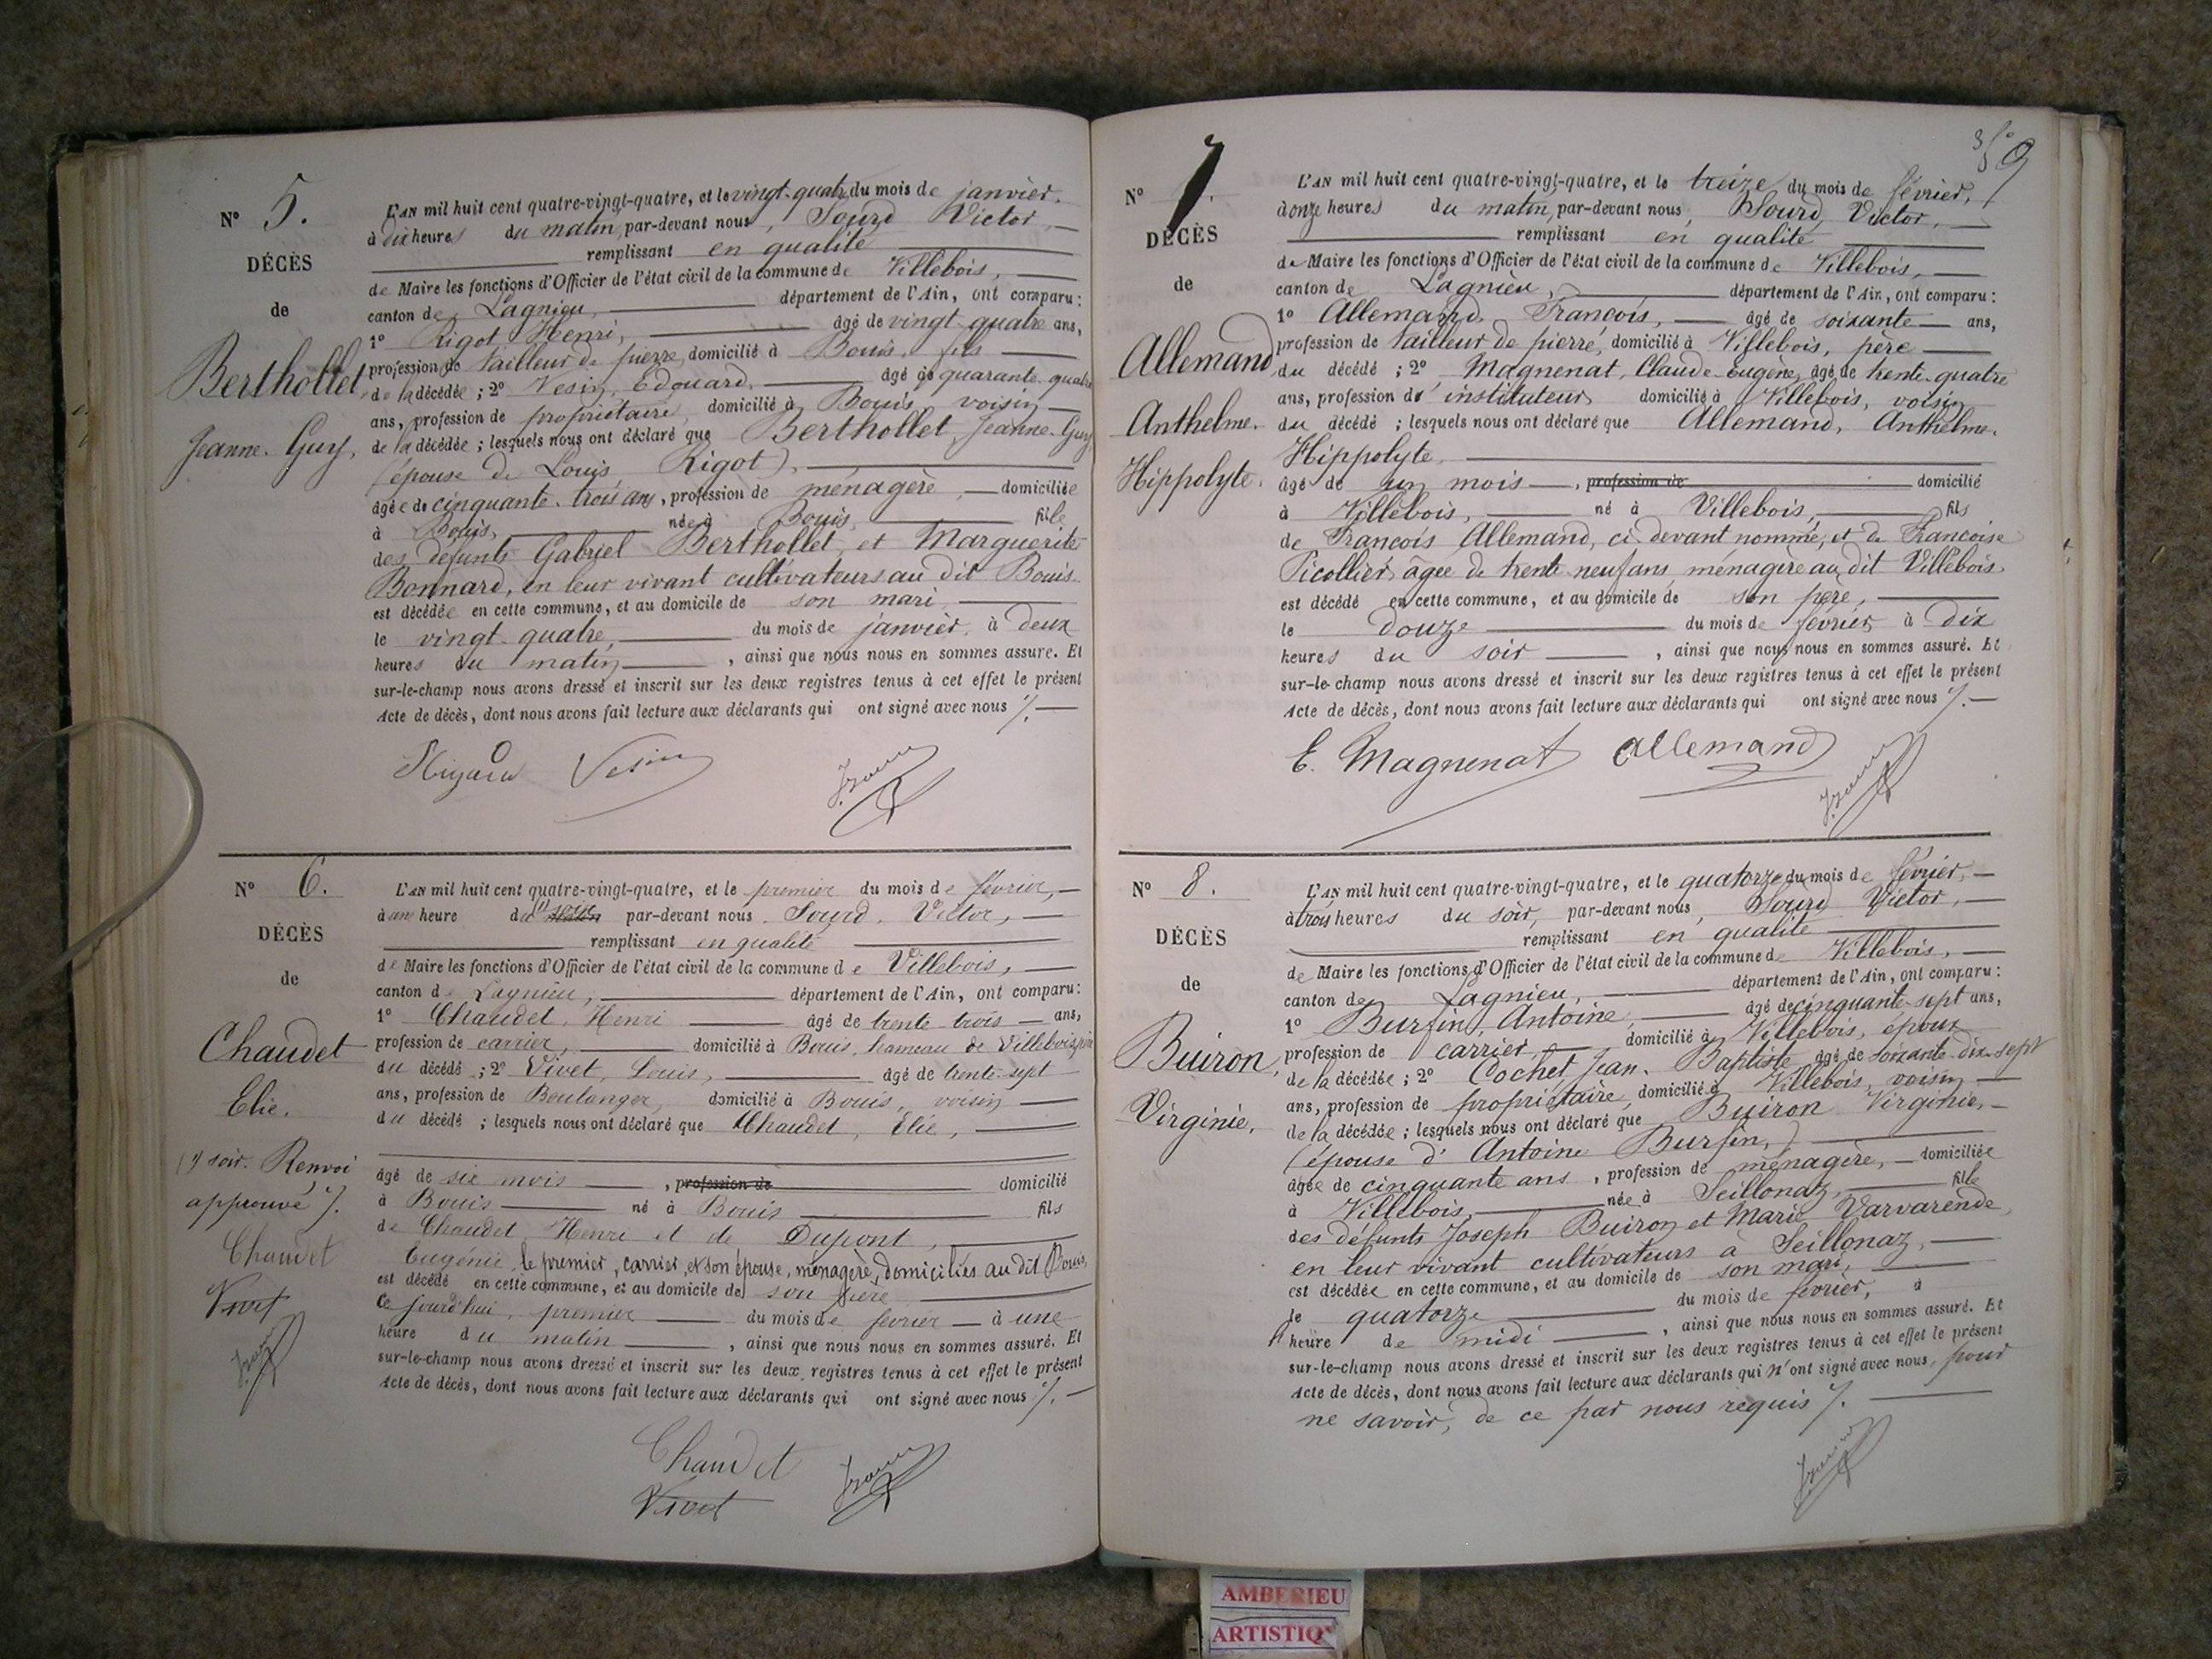 N° 5.
DÉCÈS
de
Berthollet,
Jeanne-Guy,
L'AN mil huit cent quatre-vingt-quatre, et le vingt-quatre du mois de janvier.
à dix heures du matin, par-devant nous, Sourd Victor,
remplissant en qualité
de Maire les fonctions d'Officier de l'état civil de la commune de Villebois,
canton de Lagnieu, département de l'Ain, ont comparu :
1° Rigot, Henri, âgé de vingt-quatre ans,
profession de tailleur de pierre, domicilié à Bouis, fils
de la décédée ; 2° Vesin, Edouard, âgé de quarante-quatre
ans, profession de propriétaire, domicilié à Bouis, voisin
de la décédée ; lesquels nous ont déclaré que Berthollet, Jeanne-Guy
(épouse de Louis Rigot),
âgée de cinquante-trois ans, profession de ménagère, domiciliée
à Bouis, née à Bouis, fille
des défunts Gabriel Berthollet, et Marguerite
Bonnard, en leur vivant cultivateurs au dit Bouis.
est décédée en cette commune, et au domicile de son mari
le vingt-quatre, du mois de janvier, à deux
heures du matin, ainsi que nous nous en sommes assuré. Et
sur-le-champ nous avons dressé et inscrit sur les deux registres tenus à cet effet le présent
Acte de décès, dont nous avons fait lecture aux déclarants qui ont signé avec nous ⁒.
Vesin
N° 6.
DÉCÈS
de
Chaudet
Elie.
(1) soir. Renvoi
approuvé ⁒.
Chaudet
Vivet
L'AN mil huit cent quatre-vingt-quatre, et le premier du mois de février,
à une heure du (1) matin par-devant nous, Sourd, Victor,
remplissant en qualité
de Maire les fonctions d'Officier de l'état civil de la commune de Villebois,
canton de Lagnieu, département de l'Ain, ont comparu :
1° Chaudet, Henri âgé de trente-trois ans,
profession de carrier, domicilié à Bouis, hameau de Villebois, père
du décédé ; 2° Vivet, Louis, âgé de trente-sept
ans, profession de Boulanger, domicilié à Bouis, voisin
du décédé ; lesquels nous ont déclaré que Chaudet, Elie,
âgé de six mois, profession de domicilié
à Bouis né à Bouis fils
de Chaudet, Henri et de Dupont,
Eugénie, le premier, carrier, et son épouse, ménagère, domiciliés au dit Bouis,
est décédé en cette commune, et au domicile de son père
ce jourd'hui, premier du mois de février à une
heure du matin, ainsi que nous nous en sommes assuré. Et
sur-le-champ nous avons dressé et inscrit sur les deux registres tenus à cet effet le présent
Acte de décès, dont nous avons fait lecture aux déclarants qui ont signé avec nous ⁒.
Chaudet
Vivet
N° 7.
DÉCÈS
de
Allemand,
Anthelme-
Hippolyte.
L'AN mil huit cent quatre-vingt-quatre, et le treize du mois de février,
à onze heures du matin, par-devant nous, Sourd, Victor,
remplissant en qualité
de Maire les fonctions d'Officier de l'état civil de la commune de Villebois,
canton de Lagnieu, département de l'Ain, ont comparu :
1° Allemand, François, âgé de soixante ans,
profession de tailleur de pierre, domicilié à Villebois, père
du décédé ; 2° Magnenat, Claude-Eugène, âgé de trente-quatre
ans, profession d'instituteur, domicilié à Villebois, voisin
du décédé ; lesquels nous ont déclaré que Allemand, Anthelme-
Hippolyte,
âgé de un mois, profession de domicilié
à Villebois, né à Villebois, fils
de François Allemand, ci-devant nommé, et de Françoise
Picollier, âgée de trente-neuf ans, ménagère au dit Villebois.
est décédé en cette commune, et au domicile de son père,
le douze du mois de février à dix
heures du soir, ainsi que nous nous en sommes assuré. Et
sur-le-champ nous avons dressé et inscrit sur les deux registres tenus à cet effet le présent
Acte de décès, dont nous avons fait lecture aux déclarants qui ont signé avec nous ⁒.
E. Magnenat Allemand
N° 8.
DÉCÈS
de
Buiron,
Virginie,
L'AN mil huit cent quatre-vingt-quatre, et le quatorze du mois de février,
à trois heures du soir, par-devant nous, Sourd Victor,
remplissant en qualité
de Maire les fonctions d'Officier de l'état civil de la commune de Villebois,
canton de Lagnieu, département de l'Ain, ont comparu :
1° Burfin, Antoine, âgé de cinquante-sept ans,
profession de carrier, domicilié à Villebois, époux
de la décédée ; 2° Cochet, Jean-Baptiste, âgé de soixante-dix-sept
ans, profession de propriétaire, domicilié à Villebois, voisin
de la décédée ; lesquels nous ont déclaré que Buiron Virginie,
(épouse d'Antoine Burfin,)
âgée de cinquante ans, profession de ménagère, domiciliée
à Villebois, née à Seillonaz, fille
des défunts Joseph Buiron et Marie Varvarende,
en leur vivant cultivateurs à Seillonaz,
est décédée en cette commune, et au domicile de son mari,
le quatorze du mois de février, à
heure de midi, ainsi que nous nous en sommes assuré. Et
sur-le-champ nous avons dressé et inscrit sur les deux registres tenus à cet effet le présent
Acte de décès, dont nous avons fait lecture aux déclarants qui n'ont signé avec nous, pour
ne savoir, de ce par nous requis ⁒.
AMBERIEU
ARTISTIQ